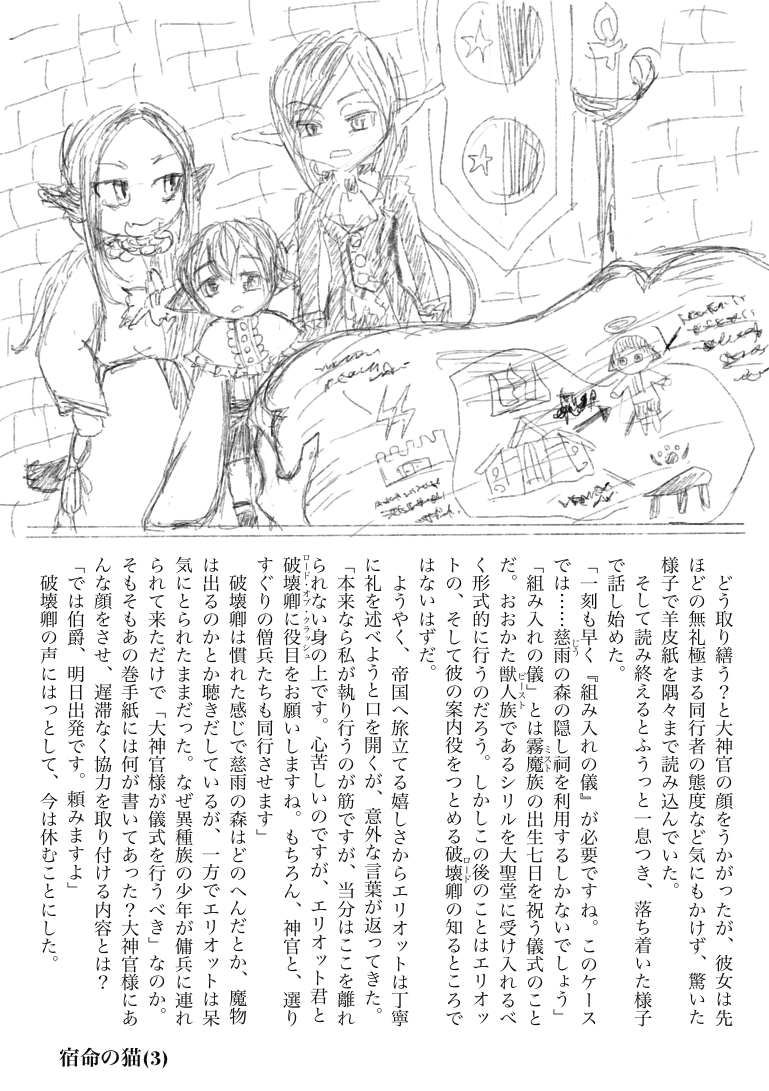 どう取り繕う？と大神官の顔をうかがったが、彼女は先
ほどの無礼極まる同行者の態度など気にもかけず、驚いた
様子で羊皮紙を隅々まで読み込んでいた。
そして読み終えるとふうっと一息つき、落ち着いた様子
で話し始めた。
「一刻も早く『組み入れの儀』が必要ですね。このケース
では……慈雨の森の隠し祠を利用するしかないでしょう」
「組み入れの儀」とは霧魔族の出生七日を祝う儀式のこと
だ。おおかた獣人族であるシリルを大聖堂に受け入れるべ
く形式的に行うのだろう。しかしこの後のことはエリオッ
トの、そして彼の案内役をつとめる破壊卿の知るところで
はないはずだ。
ようやく、帝国へ旅立てる嬉しさからエリオットは丁寧
に礼を述べようと口を開くが、意外な言葉が返ってきた。
「本来なら私が執り行うのが筋ですが、当分はここを離れ
られない身の上です。心苦しいのですが、エリオット君と
破壊卿に役目をお願いしますね。もちろん、神官と、選り
すぐりの僧兵たちも同行させます」
破壊卿は慣れた感じで慈雨の森はどのへんだとか、魔物
は出るのかとか聴きだしているが、一方でエリオットは呆
気にとられたままだった。なぜ異種族の少年が傭兵に連れ
られて来ただけで「大神官様が儀式を行うべき」なのか。
そもそもあの巻手紙には何が書いてあった？大神官様にあ
んな顔をさせ、遅滞なく協力を取り付ける内容とは？
「では伯爵、明日出発です。頼みますよ」
破壊卿の声にはっとして、今は休むことにした。
宿命の猫(3)